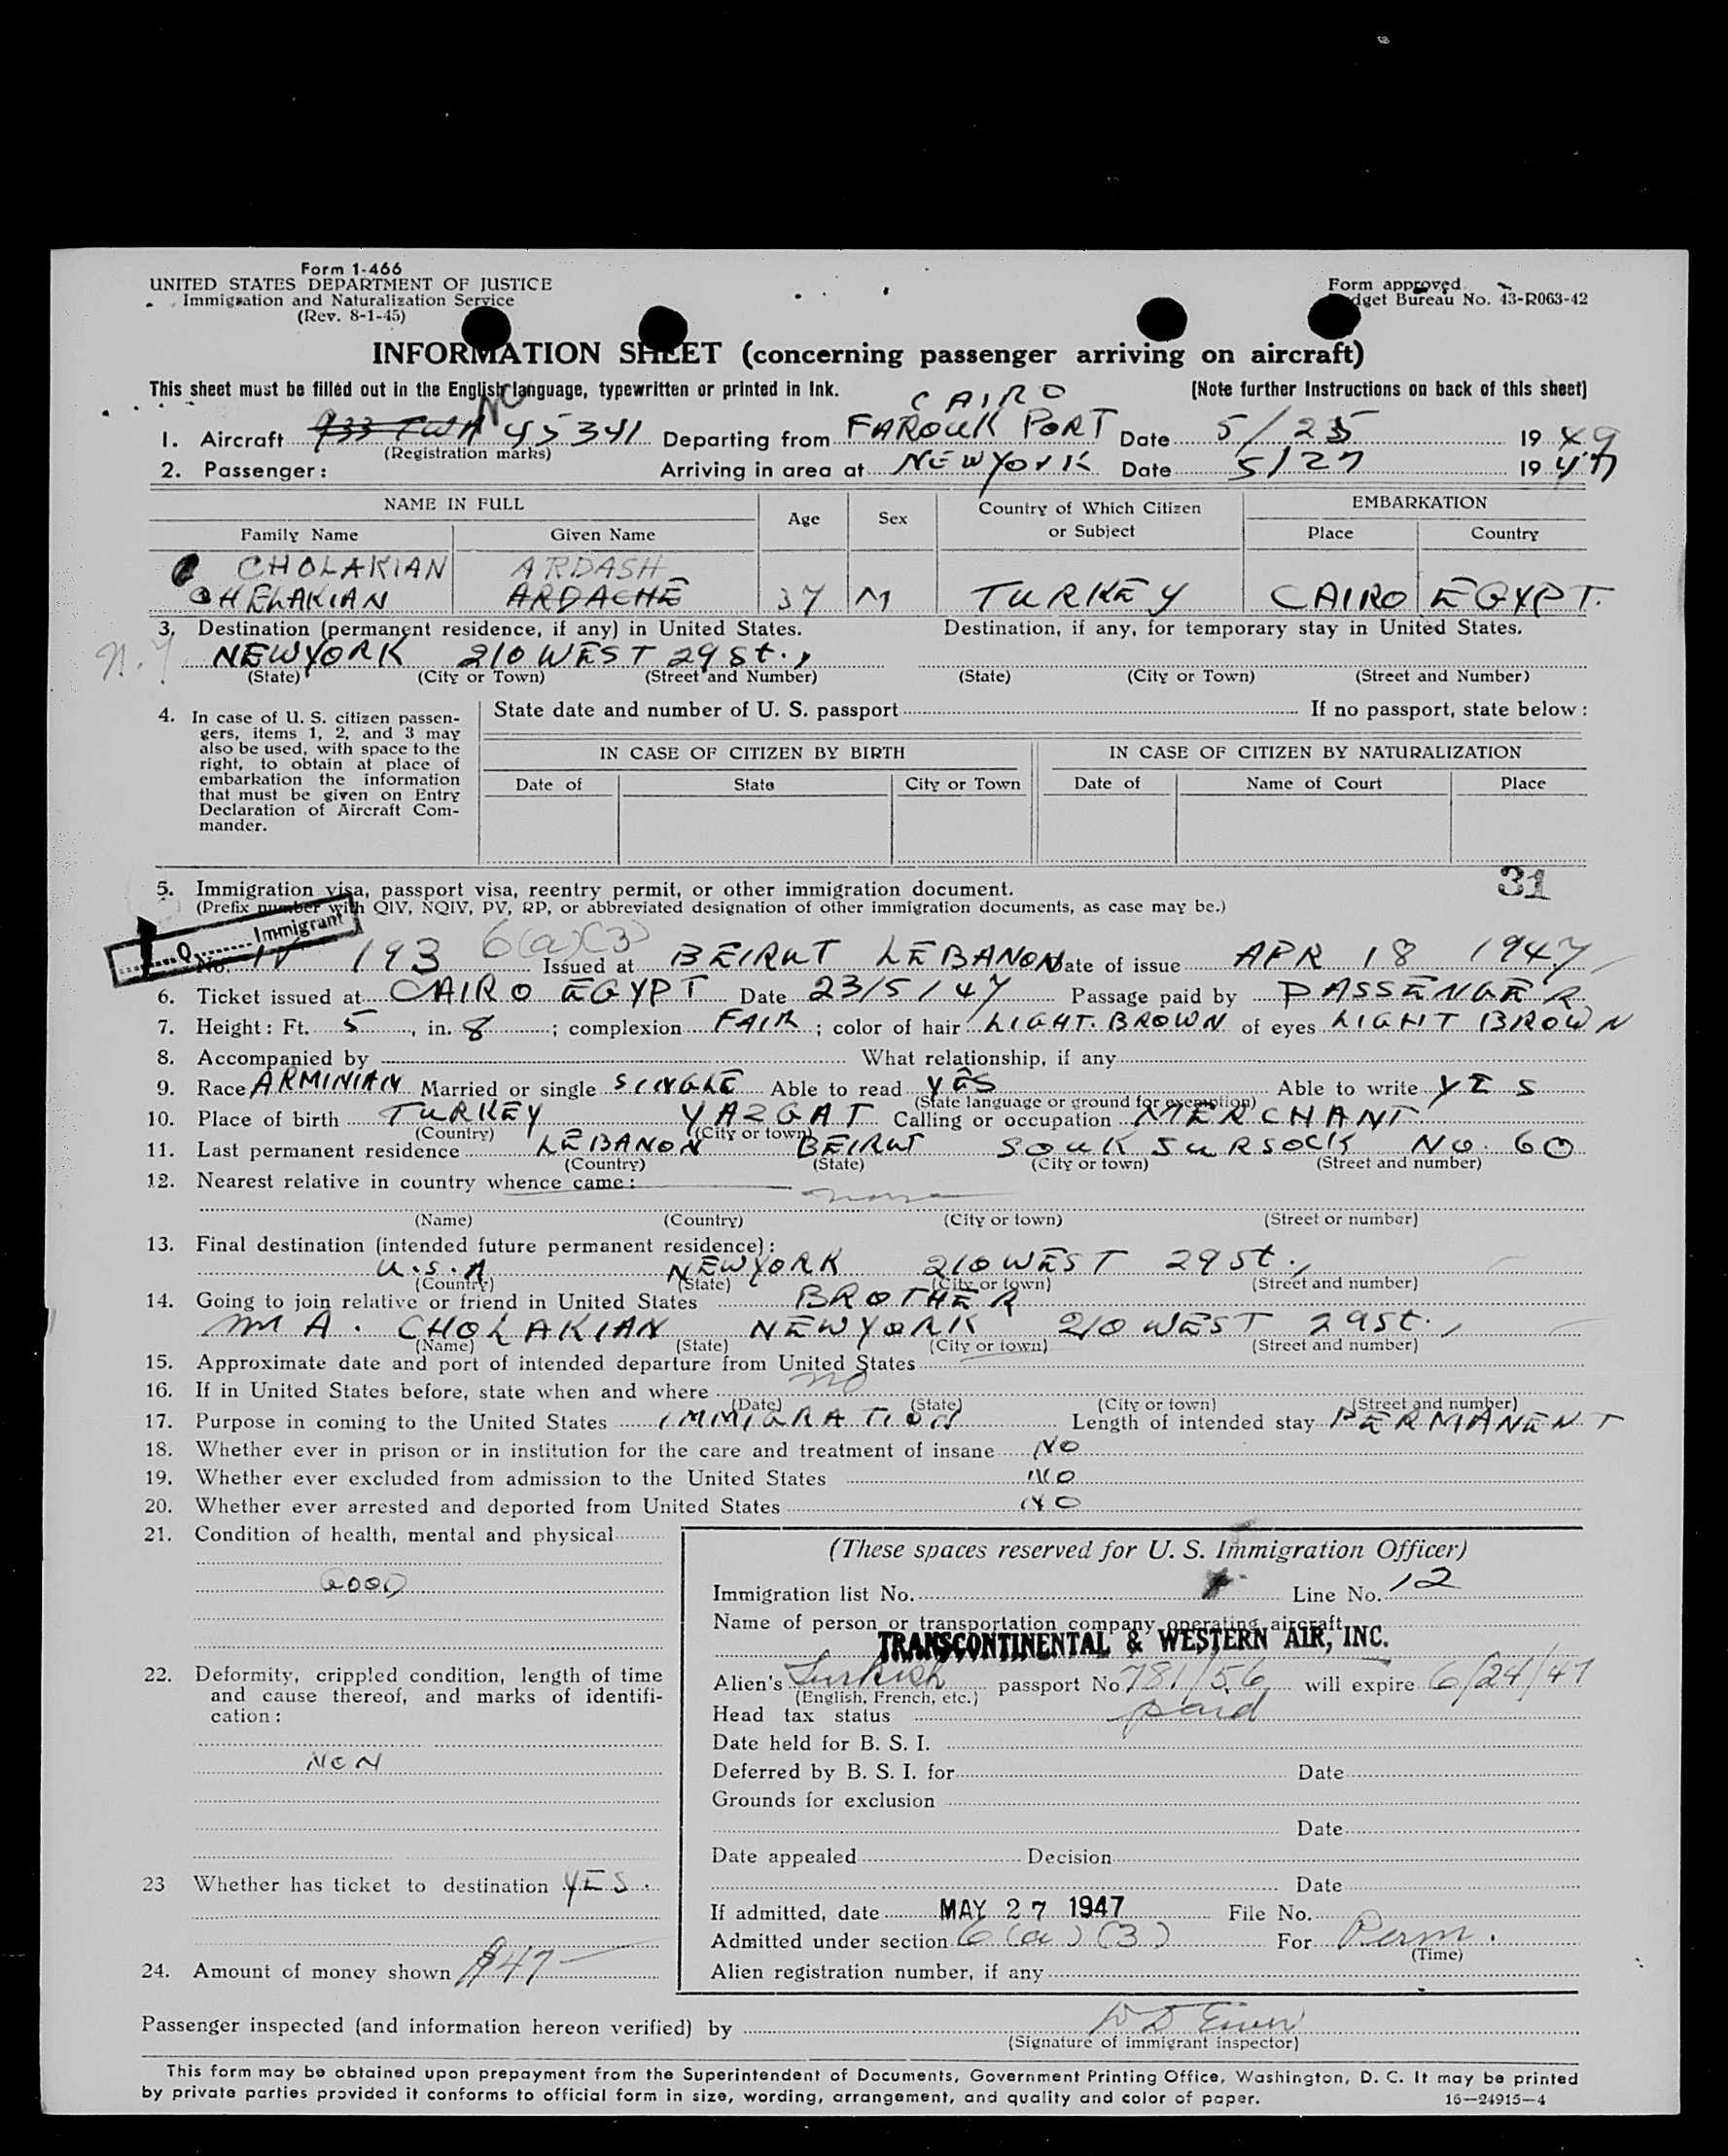 Form 1-466
UNITED STATES DEPARTMENT OF JUSTICE
Immigration and Naturalization Service
(Rev. 8-1-45)
Form approved
dget Bureau No. 43-R063-42
INFORMATION SHEET (concerning passenger arriving on aircraft)
This sheet must be filled out in the English language, typewritten or printed in ink.
(Note further instructions on back of this sheet)
CAIRO
1. Aircraft 933 TWA NC 45341 Departing from FAROUK PORT Date 5/25 19 49
(Registration marks)
2. Passenger: Arriving in area at NEWYORK Date 5/27 19 47
NAME IN FULL Age Sex Country of Which Citizen or Subject EMBARKATION
Family Name Given Name Place Country
CHOLAKIAN ARDASH
CHELAKIAN ARDACHE 37 M TURKEY CAIRO EGYPT.
3. Destination (permanent residence, if any) in United States. Destination, if any, for temporary stay in United States.
N.Y NEWYORK 210 WEST 29 St.,
(State) (City or Town) (Street and Number) (State) (City or Town) (Street and Number)
4. In case of U. S. citizen passen-
gers, items 1, 2, and 3 may
also be used, with space to the
right, to obtain at place of
embarkation the information
that must be given on Entry
Declaration of Aircraft Com-
mander.
State date and number of U. S. passport If no passport, state below:
IN CASE OF CITIZEN BY BIRTH IN CASE OF CITIZEN BY NATURALIZATION
Date of State City or Town Date of Name of Court Place
31
5. Immigration visa, passport visa, reentry permit, or other immigration document.
(Prefix number with QIV, NQIV, PV, RP, or abbreviated designation of other immigration documents, as case may be.)
Q Immigrant
No. IV 193 6(a)(3) Issued at BEIRUT LEBANON Date of issue APR 18 1947
6. Ticket issued at CAIRO EGYPT Date 23/5/47 Passage paid by PASSENGER
7. Height: Ft. 5, in. 8; complexion FAIR; color of hair LIGHT. BROWN of eyes LIGHT BROWN
8. Accompanied by What relationship, if any
9. Race ARMINIAN Married or single SINGLE Able to read YES Able to write YES
(State language or ground for exemption)
10. Place of birth TURKEY YAZGAT Calling or occupation MERCHANT
(Country) (City or town)
11. Last permanent residence LEBANON BEIRUT SOUK SURSOCK NO. 60
(Country) (State) (City or town) (Street and number)
12. Nearest relative in country whence came:
none
(Name) (Country) (City or town) (Street or number)
13. Final destination (intended future permanent residence):
U.S.A NEWYORK 210 WEST 29 St.,
(Country) (State) (City or town) (Street and number)
14. Going to join relative or friend in United States BROTHER
M A. CHOLAKIAN NEWYORK 210 WEST 29 St.,
(Name) (State) (City or town) (Street and number)
15. Approximate date and port of intended departure from United States
16. If in United States before, state when and where no
(Date) (State) (City or town) (Street and number)
17. Purpose in coming to the United States IMMIGRATION Length of intended stay PERMANENT
18. Whether ever in prison or in institution for the care and treatment of insane NO
19. Whether ever excluded from admission to the United States NO
20. Whether ever arrested and deported from United States NO
21. Condition of health, mental and physical
GOOD
22. Deformity, crippled condition, length of time
and cause thereof, and marks of identifi-
cation:
NON
23 Whether has ticket to destination YES.
24. Amount of money shown $47
(These spaces reserved for U. S. Immigration Officer)
Immigration list No. Line No. 12
Name of person or transportation company operating aircraft
TRANSCONTINENTAL & WESTERN AIR, INC.
Alien's Turkish passport No 781/56 will expire 6/24/47
(English, French, etc.)
Head tax status paid
Date held for B. S. I.
Deferred by B. S. I. for Date
Grounds for exclusion
Date
Date appealed Decision
Date
If admitted, date MAY 27 1947 File No.
Admitted under section 6(a)(3) For Perm.
(Time)
Alien registration number, if any
Passenger inspected (and information hereon verified) by
(Signature of immigrant inspector)
This form may be obtained upon prepayment from the Superintendent of Documents, Government Printing Office, Washington, D. C. It may be printed
by private parties provided it conforms to official form in size, wording, arrangement, and quality and color of paper. 16—24915-4